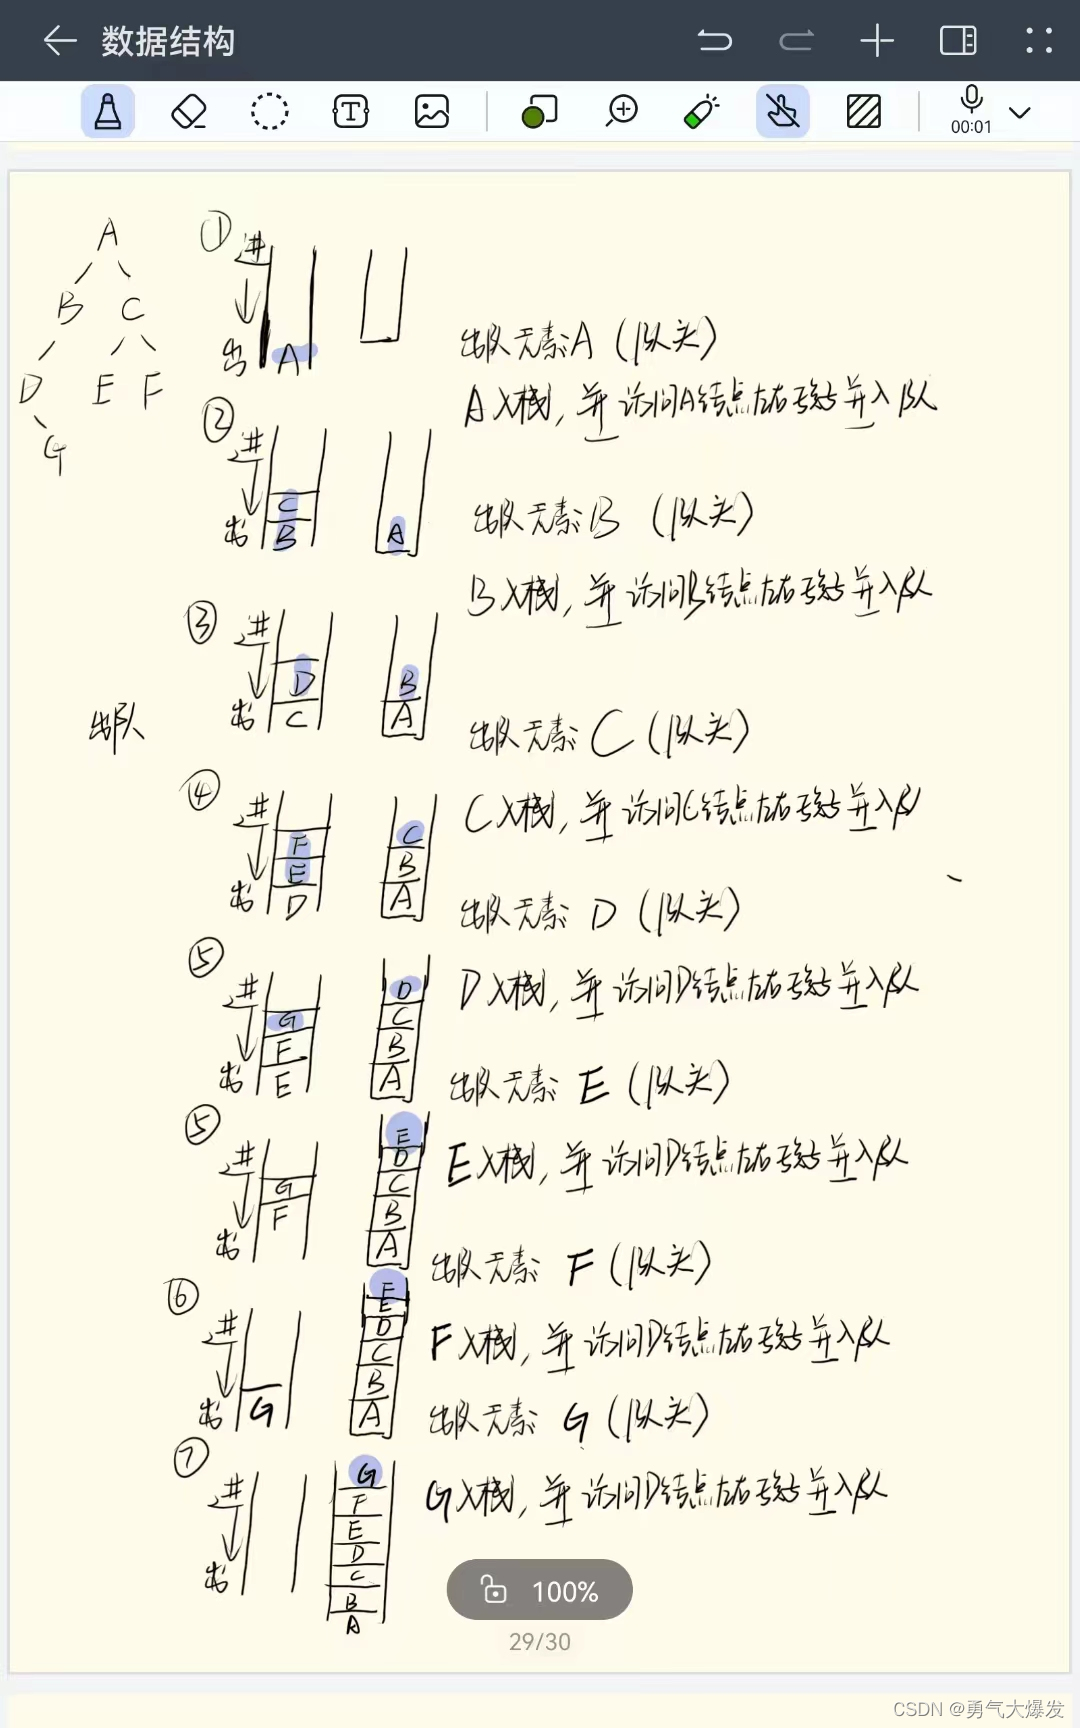 数据结构
00:01
A
B C
D E F
G
①
进
出
A
出队元素A (队头)
A入栈, 并访问A结点左右孩子并入队
②
进
出
C
B
A
出队元素B (队头)
B入栈, 并访问B结点左右孩子并入队
③
进
出
D
C
B
A
出队
出队元素C (队头)
④
进
出
F
E
D
C
B
A
C入栈, 并访问C结点左右孩子并入队
出队元素D (队头)
⑤
进
出
G
F
E
D
C
B
A
D入栈, 并访问D结点左右孩子并入队
出队元素E (队头)
⑤
进
出
G
F
E
D
C
B
A
E入栈, 并访问D结点左右孩子并入队
出队元素F (队头)
⑥
进
出
G
F
E
D
C
B
A
F入栈, 并访问D结点左右孩子并入队
出队元素G (队头)
⑦
进
出
G
F
E
D
C
B
A
G入栈, 并访问D结点左右孩子并入队
100%
29/30
CSDN @勇气大爆发